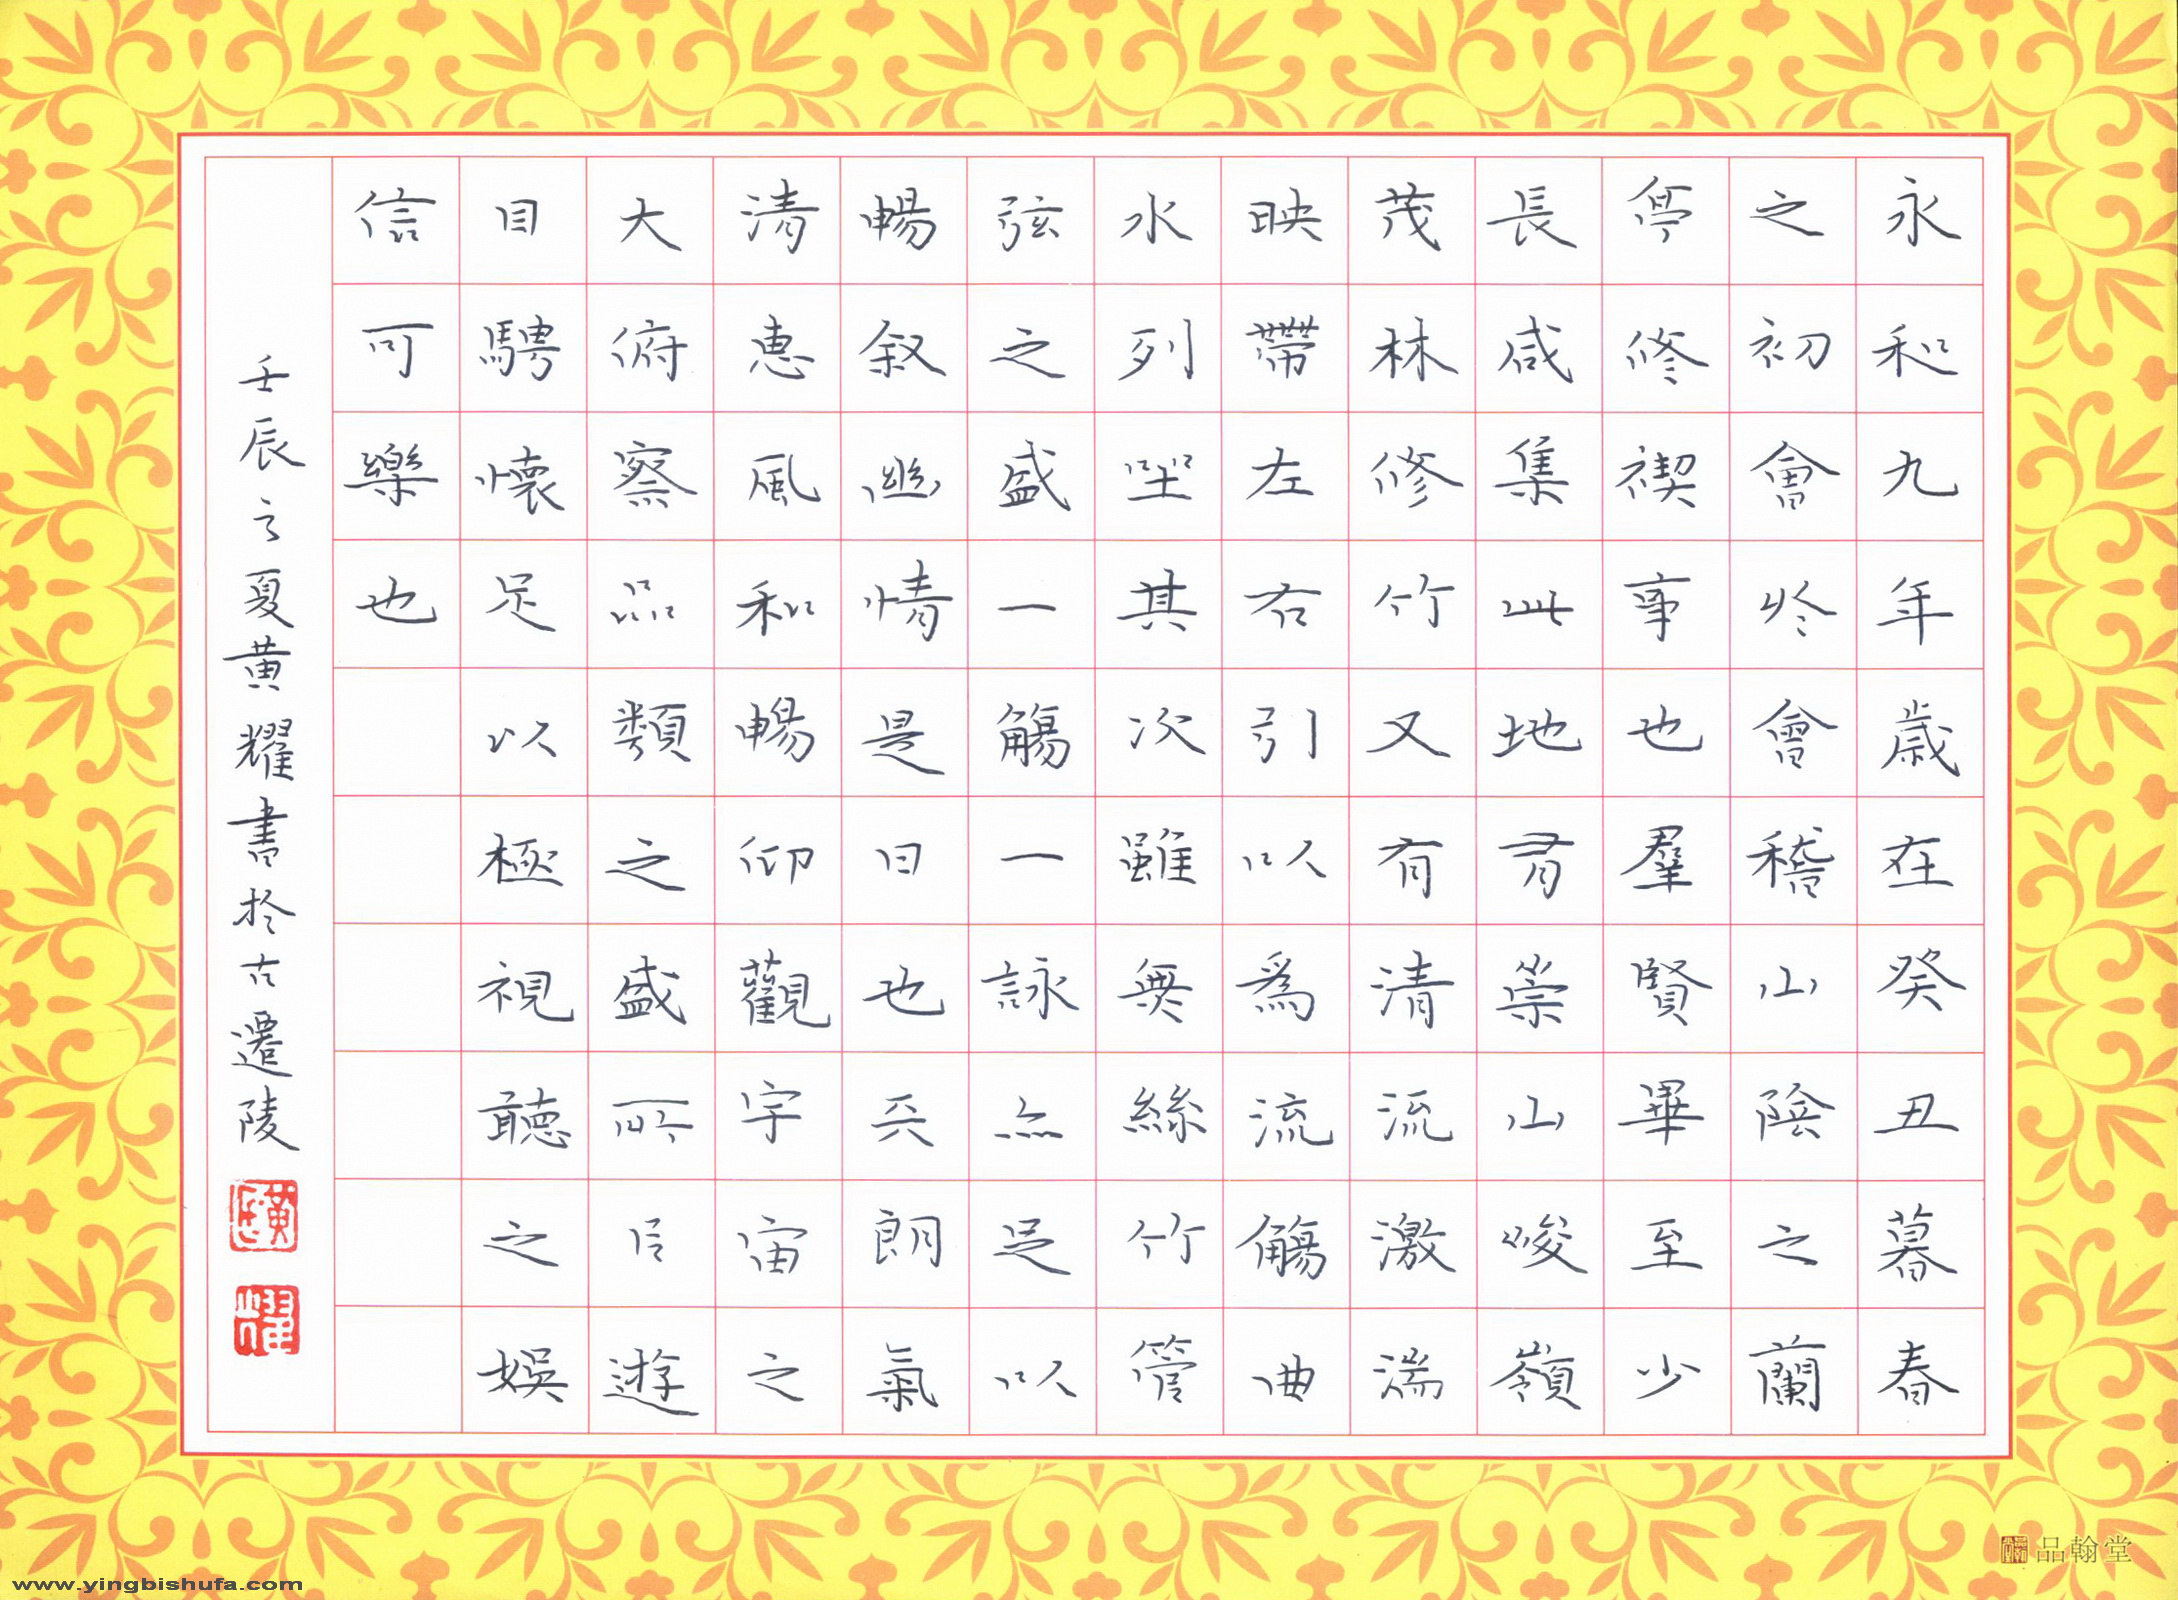 永和九年歲在癸丑暮春
之初會於會稽山陰之蘭
亭修禊事也羣賢畢至少
長咸集此地有崇山峻嶺
茂林修竹又有清流激湍
映帶左右引以爲流觴曲
水列坐其次雖無絲竹管
弦之盛一觴一詠亦足以
暢叙幽情是日也天朗氣
清惠風和暢仰觀宇宙之
大俯察品類之盛所以遊
目騁懷足以極視聽之娛
信可樂也
壬辰之夏黄耀書於古遷陵
耀
品翰堂
www.yingbishufa.com